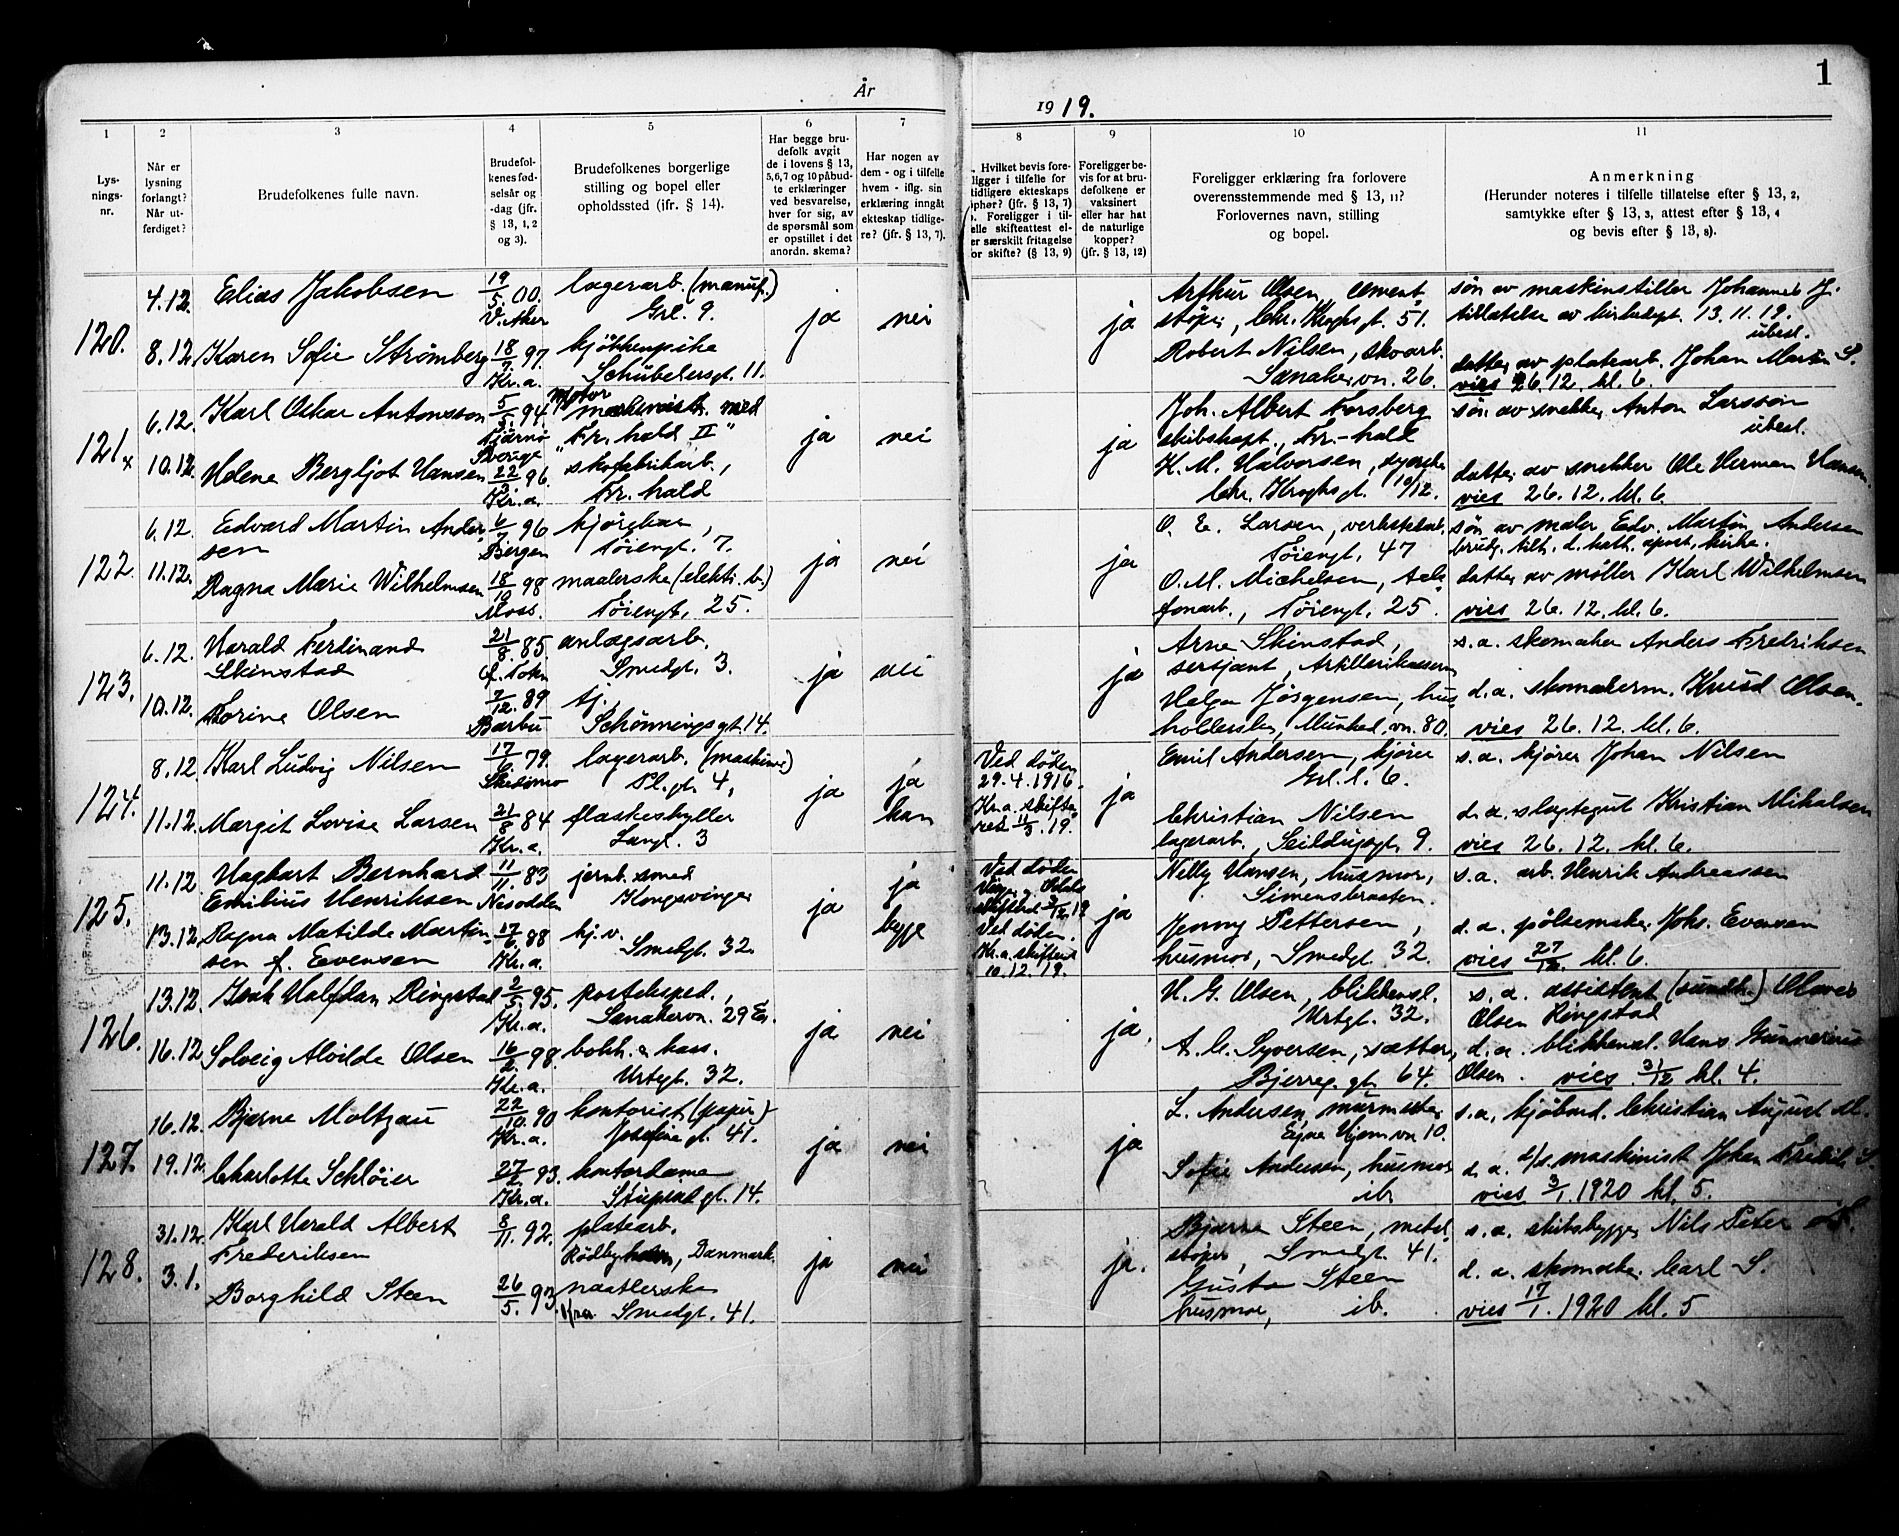 1
År 1919.
1 2 3 4 5 6 7 8 9 10 11
Lys-
nings-
nr.
Når er
lysning
forlangt?
Når ut-
ferdiget?
Brudefolkenes fulle navn.
Brudefol-
kenes fød-
selsår og
-dag (jfr.
§ 13, 1, 2
og 3).
Brudefolkenes borgerlige
stilling og bopel eller
opholdssted (ifr. § 14).
Har begge bru-
defolk avgit
de i lovens § 13,
5,6,7 og 10 påbud-
te erklæringer
ved besvarelse,
hver for sig, av
de spørsmål som
er opstillet i det
anordn. skema?
Har nogen av
dem - og i tilfelle
hvem - iflg. sin
erklæring inngåt
ekteskap tidlige-
re? (jfr. § 13, 7).
. Hvilket bevis fore-
ligger i tilfelle for
tidligere ekteskaps
ophør? (jfr. § 13, 7)
. Foreligger i til-
elle skifteattest el-
er særskilt fritagelse
or skifte? (§ 13, 9)
Foreligger be-
vis for at bru-
defolkene er
vaksinert
eller har hat
de naturlige
kopper?
(jfr. § 13, 12)
Foreligger erklæring fra forlovere
overensstemmende med § 13, 11?
Forlovernes navn, stilling
og bopel.
Anmerkning
(Herunder noteres i tilfelle tillatelse efter § 13, 2,
samtykke efter § 13, 3, attest efter § 13, 4
og bevis efter § 13, 8).
120.
4.12.
8.12.
Elias Jakobsen
Karen Sofie Strömberg
19/5.00.
V. Aker
18/7 97.
Kr.a.
lagerarb. (manuf.)
Grl. 9.
kjökkenpike
Schübelersgt. 11.
ja
nei
ja
Arthur Olsen, cement
støper, Chr. Kroghsgt. 51.
Robert Nilsen, skoarb.
Sanakervn. 26.
søn av maskinstiller Johannes J.
tillatelse av kirkedept. 13.11.19.
ubesl.
datter av platearb. Johan Martin S.
vies 26.12. kl. 6.
121.x
6.12.
10.12.
Karl Oskar Antonsson
Helene Bergljot Hansen
94
Tjärnö
Sverige
22/3 96.
Kr.a.
motor
maskinist. med
"Fr. hald II"
skofabrikarb.,
Fr. hald
ja
nei
ja
Joh. Albert Forsberg
skibskapt., Fr-hald
K. M. Halvorsen, syerske
Chr. Kroghsgt. 10/12.
søn av snekker Anton Larsson
ubesl.
datter av snekker Ole Herman Hansen
vies 26.12. kl. 6.
122.
6.12.
11.12.
Edvard Martin Ander-
sen
Ragna Marie Wilhelmsen
6/7 96
Bergen
18/10 98
Moss.
kjørekar,
Tøiengt. 7.
maalerske (elektr. b.)
Tøiengt. 25.
ja
nei
ja
O. E. Larsen, verkstedarb.
Tøiengt. 47
O. M. Michelsen, tele-
fonarb., Tøiengt. 25.
søn av maler Edv. Martin Andersen
brudg. tilh. d. kath. apost. kirke.
datter av møller Karl Wilhelmsen
vies 26.12. kl. 6.
123.
6.12.
10.12.
Harald Ferdinand
Skinstad
Torine Olsen
21/8. 85
Ø. Toten
7/12. 89
Barbu
anlegsarb.
Smedgt. 3.
tj.
Schönningsgt. 14.
ja
nei
ja
Arne Skinstad,
sersjant, Artillerikasern
Helga Jørgensen, hus-
holderske, Munked. vn. 80.
s.a. skomaker Anders Fredriksen
d.a. skomakerm. Knud Olsen.
vies 26.12. kl. 6.
124.
8.12.
11.12.
Karl Ludvig Nilsen
Margit Lovise Larsen
17/6 79.
Skedsmo
21/8 84
Kr.a.
lagerarb. (maskine)
Pl. gt. 4,
flaskeskyller
Langt. 3
ja
ja
han
Ved døden
29.4.1916.
Kr.a. skifte-
ret 11/3. 19.
ja
Emil Andersen, kjører
Grl. l. 6.
Christian Nilsen
lagerarb., Seilduksgt. 9.
s.a. kjører Johan Nilsen
d.a. slagtegut Kristian Mikalsen
vies 26.12. kl. 6.
125.
11.12.
13.12.
Haghart Bernhard
Emilius Henriksen
Ragna Matilde Martin-
sen f. Evensen
11/11. 83
Nesodden
17/6. 88
Kr.a.
jernb. smed
Kongsvinger
hj. v.
Smedgt. 32.
ja
ja
begge
Ved døden
Ved døden.
Kr.a. skifteret
10.12.19.
ja
Nelly Hansen, husmor,
Simensbraaten.
Jenny Pettersen,
husmor, Smedgt. 32.
s.a. arb. Henrik Andreassen
d.a. pølsemaker Johs. Evensen
vies 27/12. kl. 6.
126.
13.12.
16.12.
Isak Halfdan Ringstad
Solveig Alvilde Olsen
2/5. 95.
Kr.a.
16/2 98.
Kr.a.
posteksped.,
Sanakervn. 29 E.
bokh. & kass.
Urtegt. 32.
ja
nei
ja.
H. G. Olsen, blikkensl.
Urtgt. 32.
A. G. Syversen, sætter,
Bjerreg. gt. 64.
s.a. assistent (sundh.) Olaves
Olsen Ringstad
d.a. blikkensl. Hans Gunnerius
Olsen. vies 31/12 kl. 4.
127.
16.12.
19.12.
Bjarne Moltzau
Charlotte Schløier
22/10. 90
Kr.a.
27/2 93.
Kr.a.
kontorist (papir)
Josefine gt. 41.
kontordame
Stupsrud gt. 14.
ja
nei
ja
L. Andersen, murmester
Egne Hjem vn 10.
Sofie Andersen, husmor
ib.
s.a. kjøbmd. Christian August M.
d.a. d/s. maskinist Johan Fredrik S.
vies 3/1. 1920 kl. 5.
128.
31.12.
3.1.
Karl Harald Albert
Frederiksen
Borghild Steen
8/11. 92.
26/5. 93
platearb.
Rødbyhavn, Danmark.
naatlerske
Smedgt. 41.
ja
nei
ja.
Bjarne Steen, metal-
støper, Smedgt. 41.
Gusta Steen
husmor, ib.
s.a. skibsbygger Nils Peter F.
d.a. skomaker Carl S.
vies 17/1. 1920 kl. 5